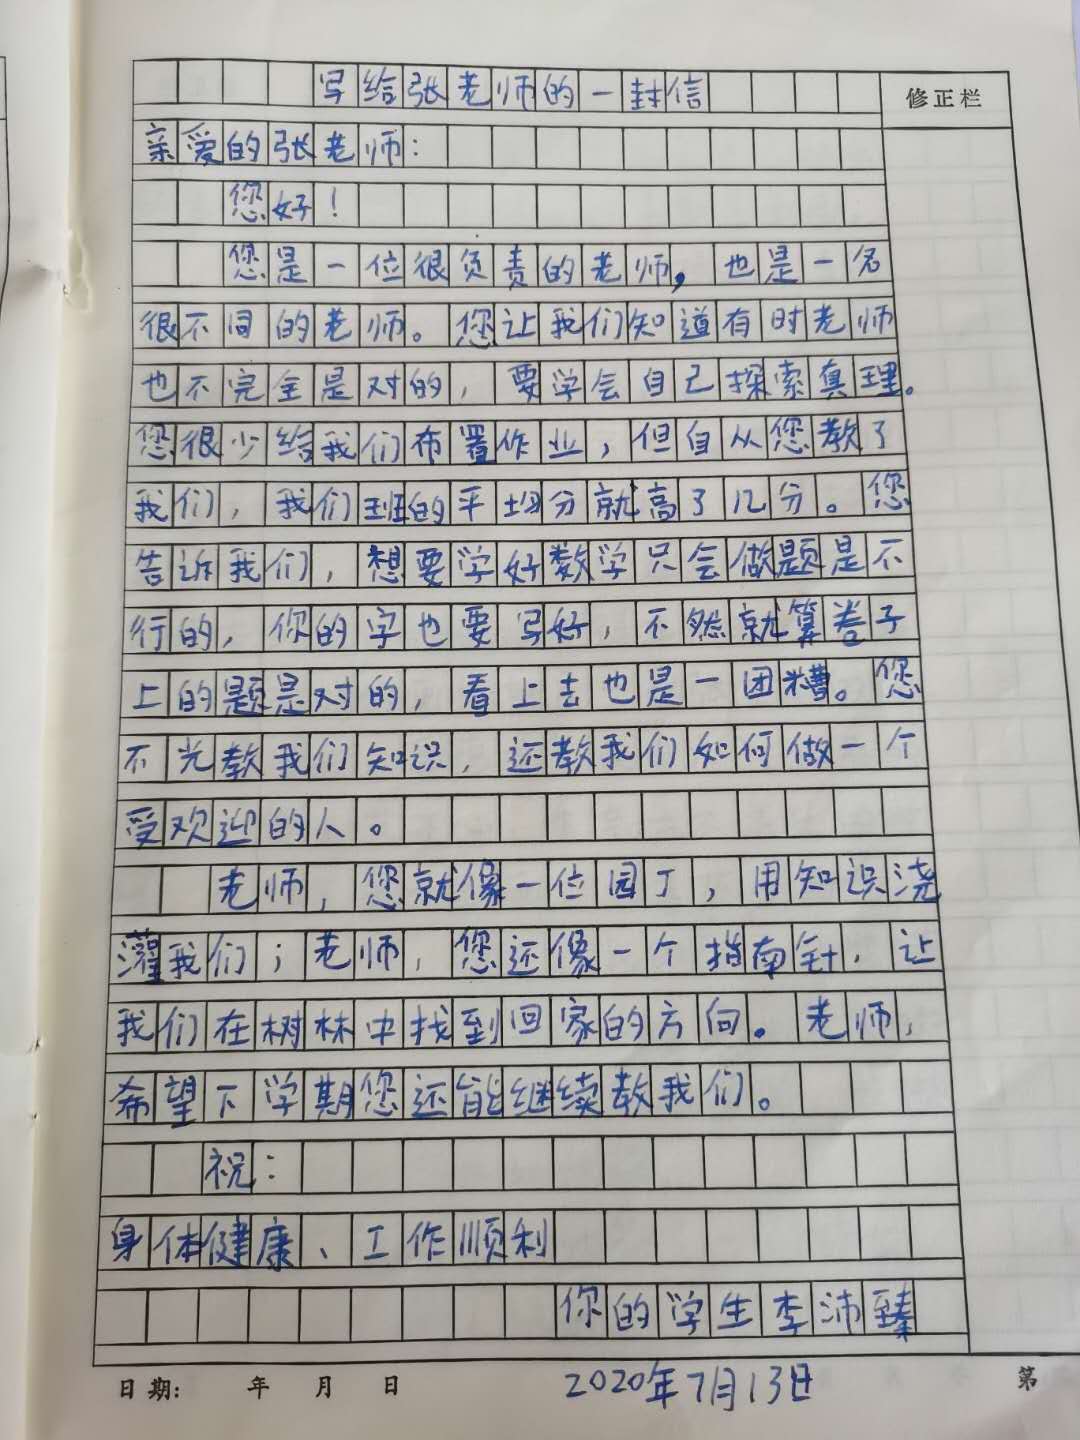 写给张老师的一封信
修正栏
亲爱的张老师：
您好！
您是一位很负责的老师，也是一名
很不同的老师。您让我们知道有时老师
也不完全是对的，要学会自己探索真理。
您很少给我们布置作业，但自从您教了
我们，我们班的平均分就高了几分。您
告诉我们，想要学好数学只会做题是不
行的，你的字也要写好，不然就算卷子
上的题是对的，看上去也是一团糟。您
不光教我们知识，还教我们如何做一个
受欢迎的人。
老师，您就像一位园丁，用知识浇
灌我们；老师，您还像一个指南针，让
我们在树林中找到回家的方向。老师，
希望下学期您还能继续教我们。
祝：
身体健康、工作顺利
你的学生李沛臻
日期： 年 月 日 2020年7月13日 第